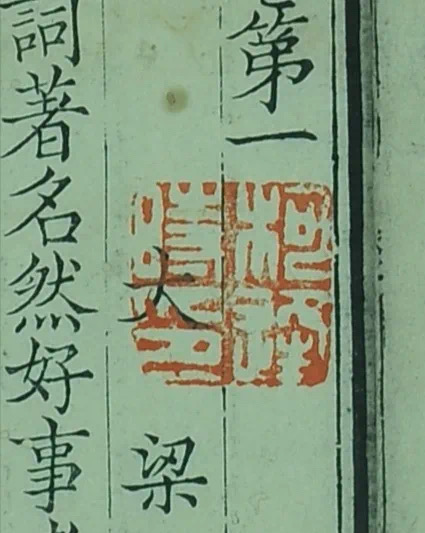 第一
大梁
詞著名然好事